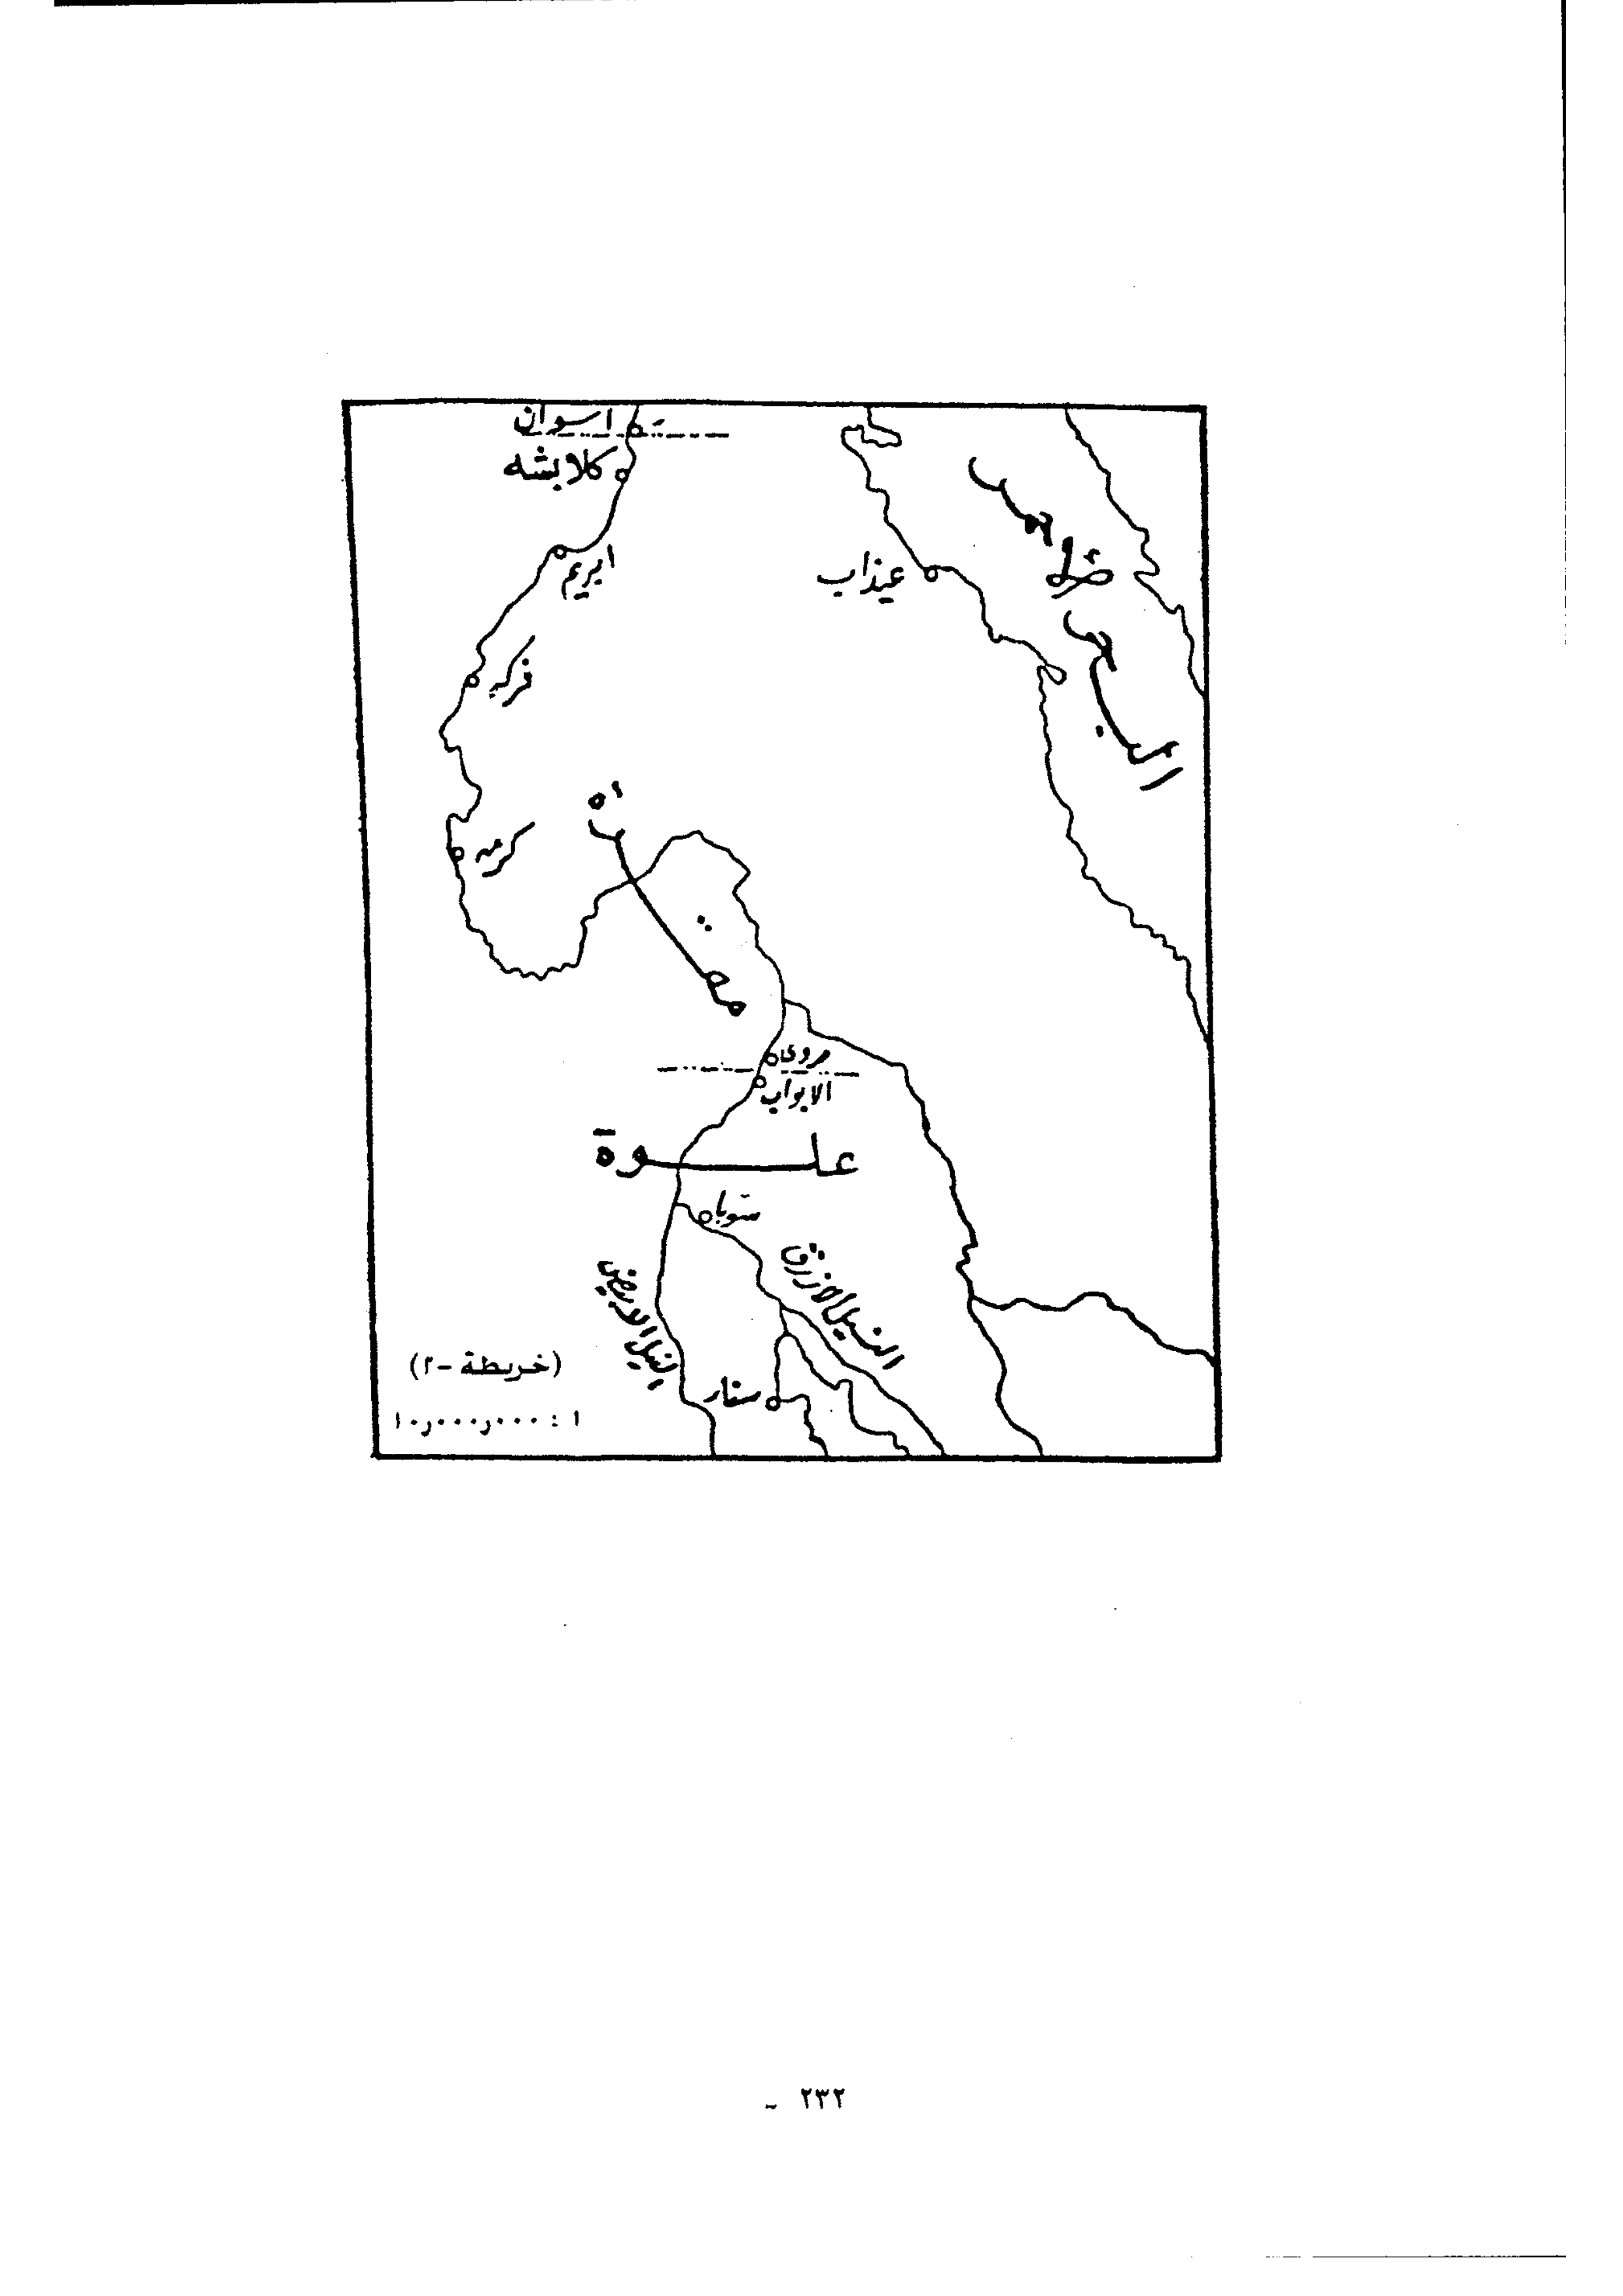 اسوان
كلابشه
ابريم
عيذاب
البحر الاحمر
فركه
كرمه
مقرة
مروى
الابواب
علــــوة
سوبا
النيل الازرق
النيل الابيض
سنار
(خريطة -٢)
١ : ١٠٫٠٠٠٫٠٠٠
٢٣٢ -